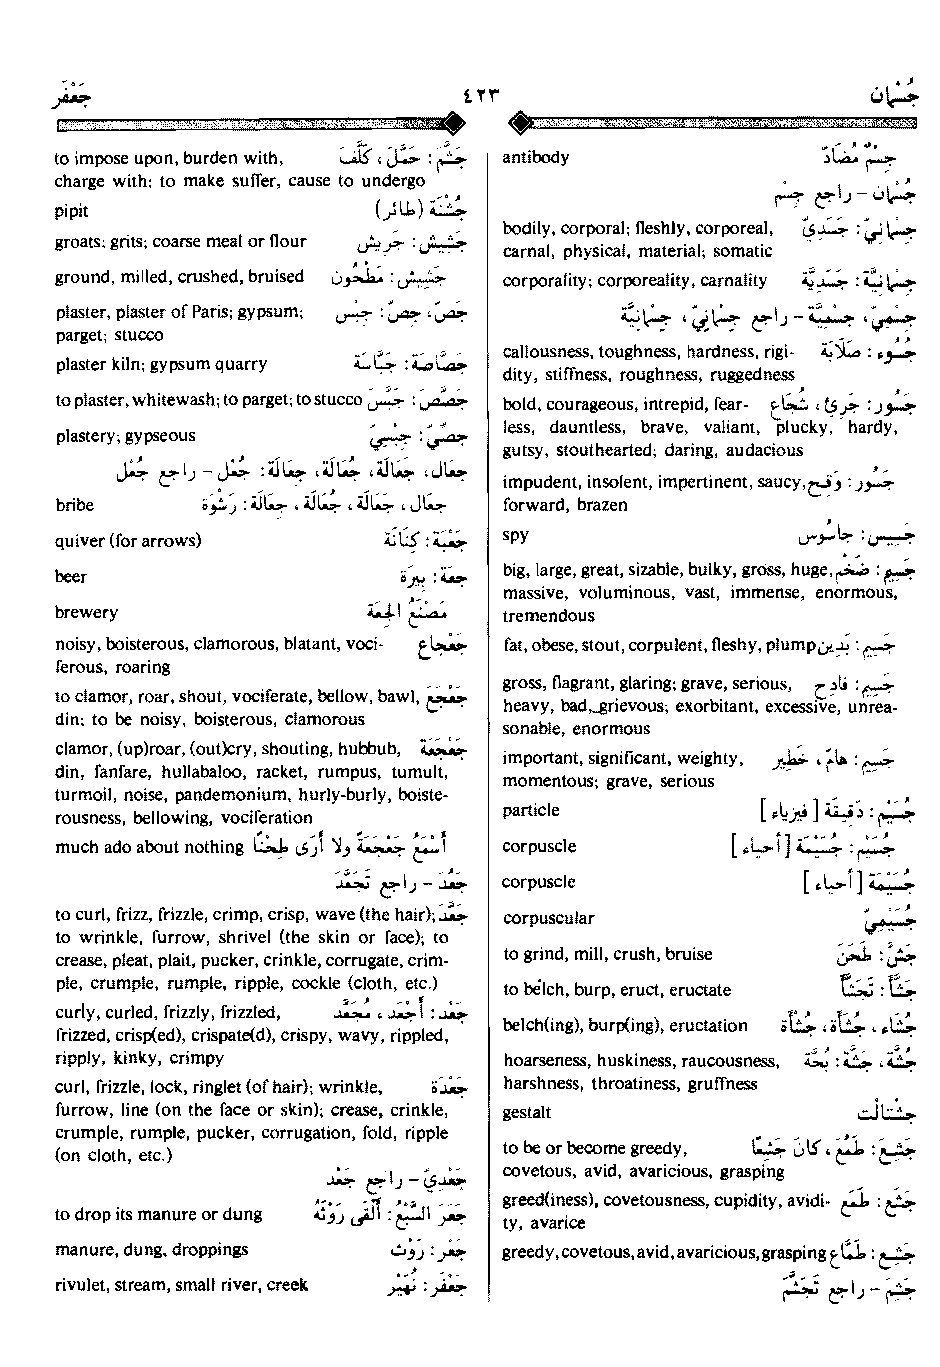 جُسْمان ٤٢٣ جَعْفَر
جِسْمٌ مُضَادّ antibody
جُسْمان - راجع جِسْم
جِسْمانِيّ: جَسَدِيّ bodily, corporal; fleshly, corporeal,
carnal, physical, material; somatic
جِسْمانِيَّة: جَسَدِيَّة corporality; corporeality, carnality
جِسْمِيّ، جِسْمِيَّة - راجع جِسْمانِيّ، جِسْمانِيَّة
جُسُوء: صَلابَة callousness, toughness, hardness, rigi-
dity, stiffness, roughness, ruggedness
جَسُور: جَرِيْء، شُجَاع bold, courageous, intrepid, fear-
less, dauntless, brave, valiant, plucky, hardy,
gutsy, stouthearted; daring, audacious
جَسُور: وَقِح impudent, insolent, impertinent, saucy,
forward, brazen
جَسِيس: جاسُوس spy
جَسِيم: ضَخْم big, large, great, sizable, bulky, gross, huge,
massive, voluminous, vast, immense, enormous,
tremendous
جَسِيم: بَدِين fat, obese, stout, corpulent, fleshy, plump
جَسِيم: فادِح gross, flagrant, glaring; grave, serious,
heavy, bad, grievous; exorbitant, excessive, unrea-
sonable, enormous
جَسِيم: هامّ، خَطِير important, significant, weighty,
momentous; grave, serious
جُسَيْم: دَقِيقَة [فيزياء] particle
جُسَيْم: جُسَيْمَة [أحياء] corpuscle
جُسَيْمَة [أحياء] corpuscle
جُسَيْمِيّ corpuscular
جَشَّ: طَحَنَ to grind, mill, crush, bruise
جَشَّأَ: تَجَشَّأَ to belch, burp, eruct, eructate
جُشَاء، جُشْأَة، جُشَأَة belch(ing), burp(ing), eructation
جُشَّة، جَشَّة: بُحَّة hoarseness, huskiness, raucousness,
harshness, throatiness, gruffness
جِشْتالْت gestalt
جَشِعَ: طَمِعَ، كانَ جَشِعًا to be or become greedy,
covetous, avid, avaricious, grasping
جَشَع: طَمَع greed(iness), covetousness, cupidity, avidi-
ty, avarice
جَشِع: طَمَّاع greedy, covetous, avid, avaricious, grasping
جَشِمَ - راجع تَجَشَّمَ
جَشَّمَ: حَمَّلَ، كَلَّفَ to impose upon, burden with,
charge with; to make suffer, cause to undergo
جُشْنَة (طائر) pipit
جَشِيش: جَرِيش groats; grits; coarse meal or flour
جَشِيش: مَطْحُون ground, milled, crushed, bruised
جَصّ، جِصّ: جِبْس plaster, plaster of Paris; gypsum;
parget; stucco
جَصَّاصَة: جَبَّاسَة plaster kiln; gypsum quarry
جَصَّصَ: جَبَّسَ to plaster, whitewash; to parget; to stucco
جِصِّيّ: جِبْسِيّ plastery; gypseous
جِعَال، جَعَالَة، جُعَالَة، جِعَالَة: جُعْل - راجع جُعْل
جِعَال، جَعَالَة، جُعَالَة، جِعَالَة: رَشْوَة bribe
جَعْبَة: كِنَانَة quiver (for arrows)
جِعَة: بِيرَة beer
مَصْنَعُ الجِعَة brewery
جَعْجاع noisy, boisterous, clamorous, blatant, voci-
ferous, roaring
جَعْجَعَ to clamor, roar, shout, vociferate, bellow, bawl,
din; to be noisy, boisterous, clamorous
جَعْجَعَة clamor, (up)roar, (out)cry, shouting, hubbub,
din, fanfare, hullabaloo, racket, rumpus, tumult,
turmoil, noise, pandemonium, hurly-burly, boiste-
rousness, bellowing, vociferation
أَسْمَعُ جَعْجَعَةً ولا أرَى طِحْنًا much ado about nothing
جَعُدَ - راجع تَجَعَّدَ
جَعَّدَ to curl, frizz, frizzle, crimp, crisp, wave (the hair);
to wrinkle, furrow, shrivel (the skin or face); to
crease, pleat, plait, pucker, crinkle, corrugate, crim-
ple, crumple, rumple, ripple, cockle (cloth, etc.)
جَعْد: أَجْعَد، مُجَعَّد curly, curled, frizzly, frizzled,
frizzed, crisp(ed), crispate(d), crispy, wavy, rippled,
ripply, kinky, crimpy
جَعْدَة curl, frizzle, lock, ringlet (of hair); wrinkle,
furrow, line (on the face or skin); crease, crinkle,
crumple, rumple, pucker, corrugation, fold, ripple
(on cloth, etc.)
جَعْدِيّ - راجع جَعْد
جَعَرَ السَّبُعُ: أَلْقَى رَوْثَهُ to drop its manure or dung
جَعْر: رَوْث manure, dung, droppings
جَعْفَر: نُهَيْر rivulet, stream, small river, creek